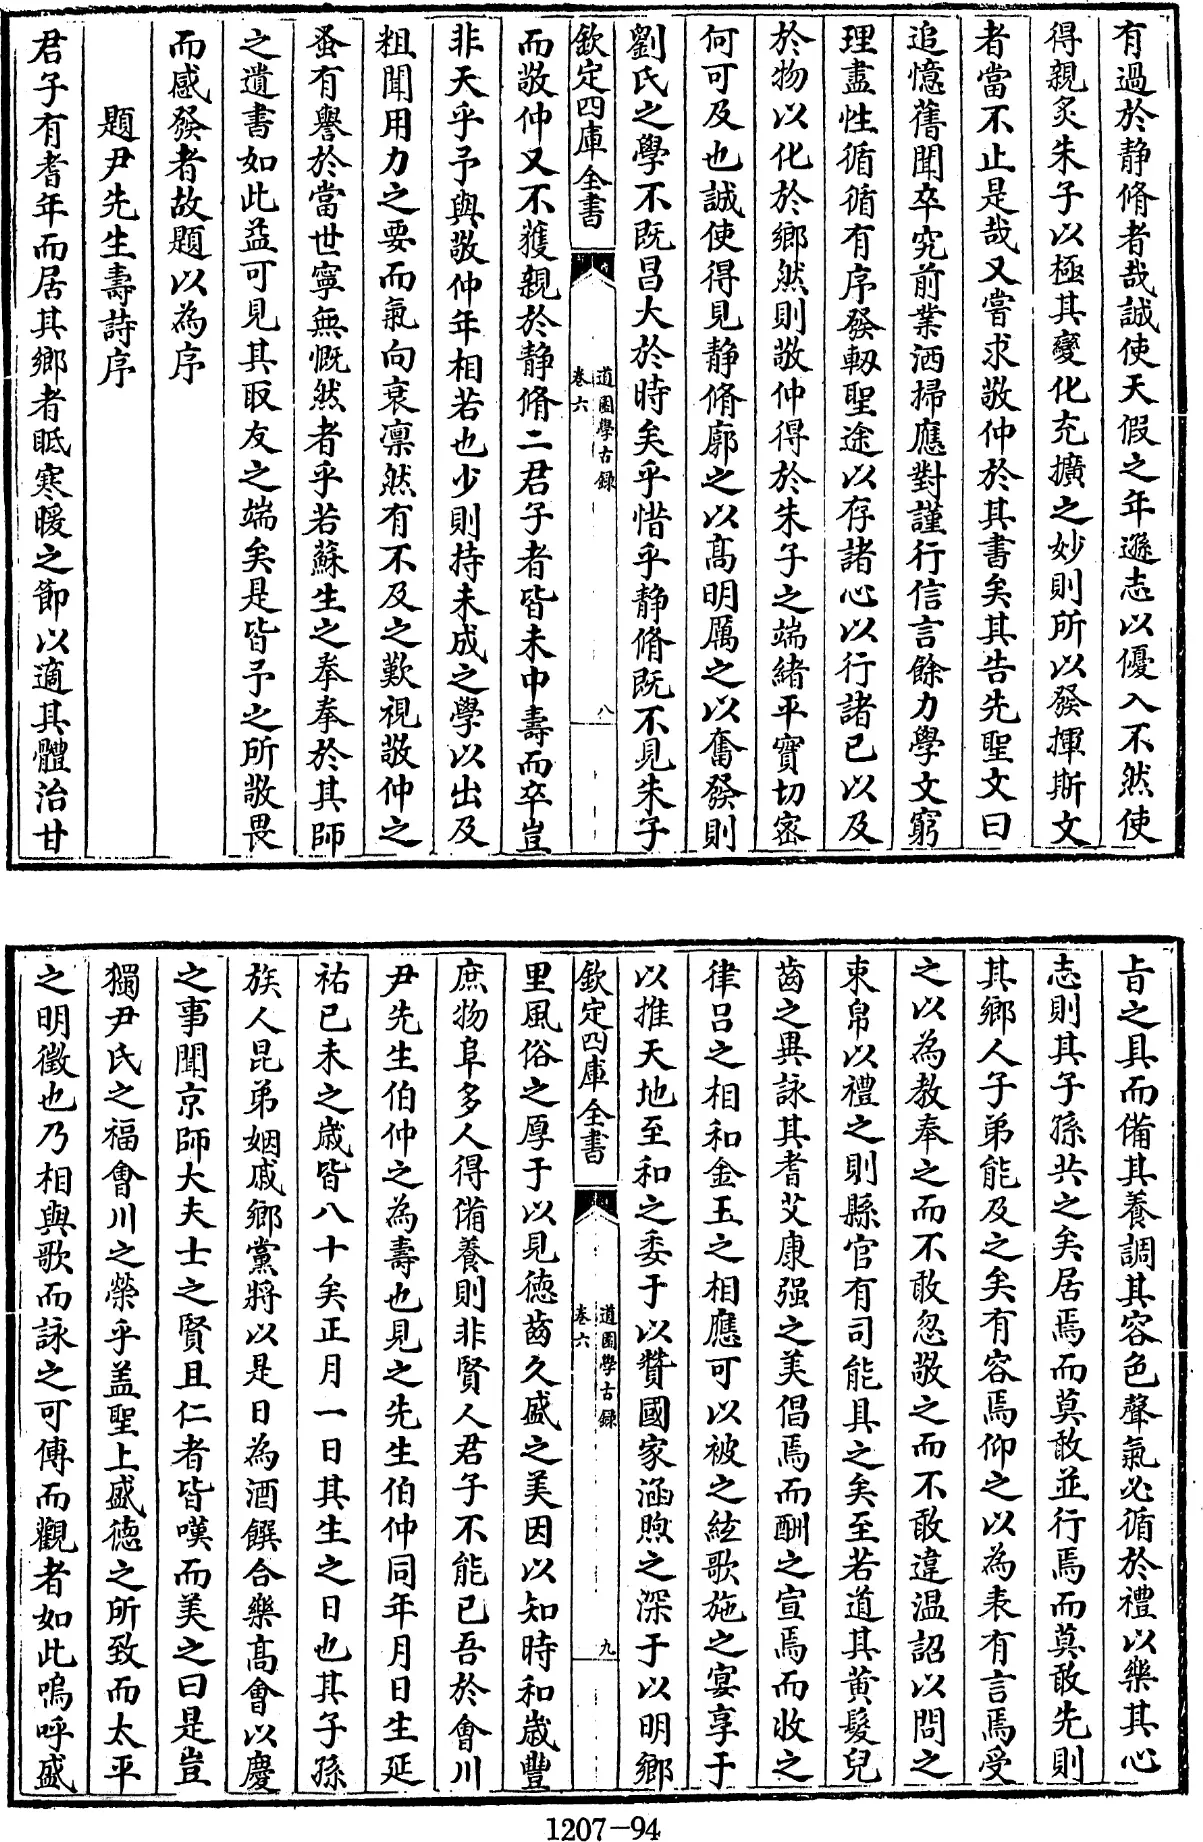 有過於靜脩者哉誠使天假之年遜志以優入不然使
得親炙朱子以極其變化充擴之妙則所以發揮斯文
者當不止是哉又嘗求敬仲於其書矣其告先聖文曰
追憶舊聞卒究前業洒掃應對謹行信言餘力學文窮
理盡性循循有序發軔聖途以存諸心以行諸己以及
於物以化於鄉然則敬仲得於朱子之端緒平實切密
何可及也誠使得見靜脩廓之以高明厲之以奮發則
劉氏之學不既昌大於時矣乎惜乎靜脩既不見朱子
欽定四庫全書
道園學古録
卷六
八
而敬仲又不獲親於靜脩二君子者皆未中壽而卒豈
非天乎予與敬仲年相若也少則持未成之學以出及
粗聞用力之要而氣向衰凛然有不及之歎視敬仲之
蚤有譽於當世寧無慨然者乎若蘇生之奉奉於其師
之遺書如此益可見其取友之端矣是皆予之所敬畏
而感發者故題以為序
題尹先生壽詩序
君子有耆年而居其鄉者眡寒暖之節以適其體治甘
㫖之具而備其養調其容色聲氣必循於禮以樂其心
志則其子孫共之矣居焉而莫敢並行焉而莫敢先則
其鄉人子弟能及之矣有容焉仰之以為表有言焉受
之以為教奉之而不敢忽敬之而不敢違温詔以問之
束帛以禮之則縣官有司能具之矣至若道其黄髮兒
齒之異詠其耆艾康强之美倡焉而酬之宣焉而收之
律呂之相和金玉之相應可以被之絃歌施之宴享于
以推天地至和之委于以贊國家涵煦之深于以明鄉
欽定四庫全書
道園學古録
卷六
九
里風俗之厚于以見德齒久盛之美因以知時和歲豐
庶物阜多人得備養則非賢人君子不能已吾於會川
尹先生伯仲之為壽也見之先生伯仲同年月日生延
祐己未之歳皆八十矣正月一日其生之日也其子孫
族人昆弟姻戚鄉黨將以是日為酒饌合樂高會以慶
之事聞京師大夫士之賢且仁者皆嘆而美之曰是豈
獨尹氏之福會川之榮乎盖聖上盛德之所致而太平
之明徵也乃相與歌而詠之可傳而觀者如此嗚呼盛
1207-94